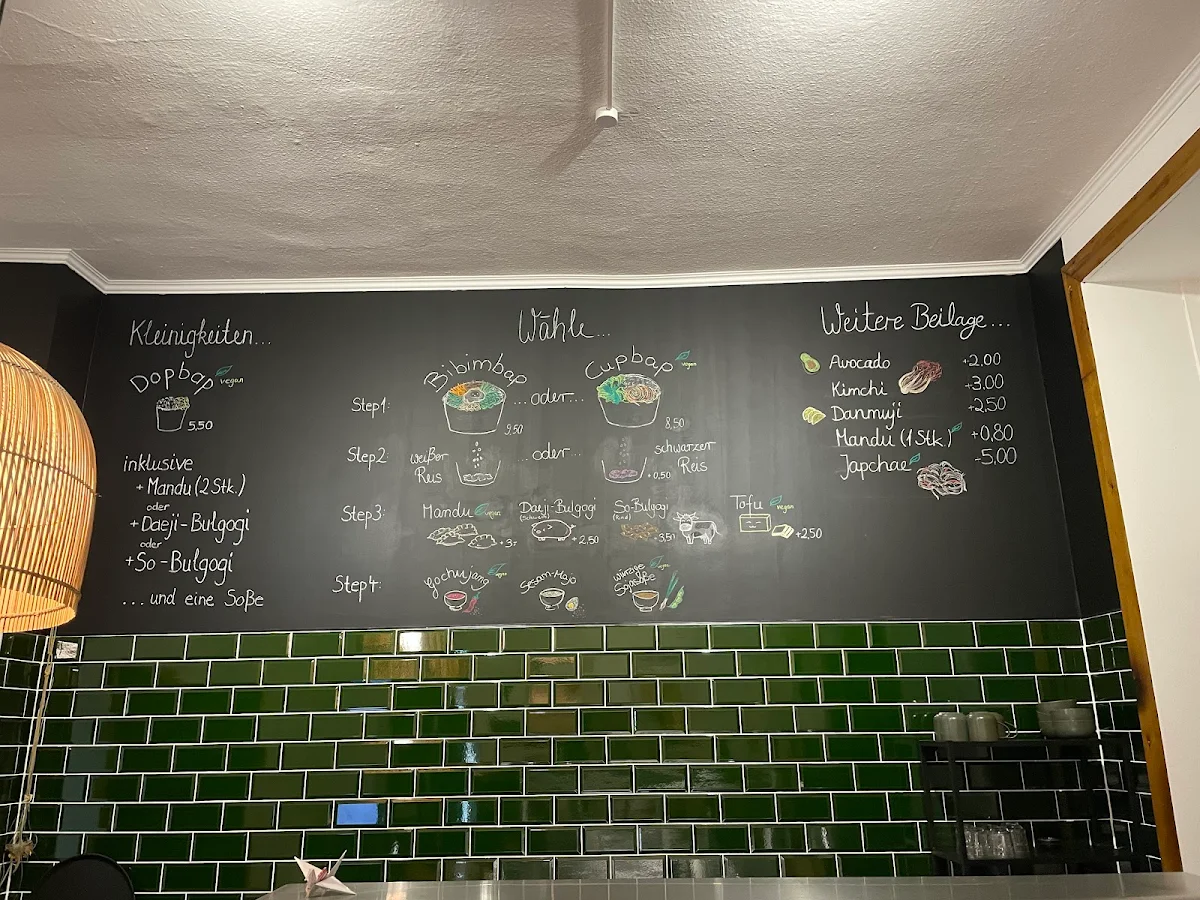 Kleinigkeiten...
Dopbap vegan
5,50
inklusive
+ Mandu (2 Stk.)
oder
+ Daeji-Bulgogi
oder
+ So-Bulgogi
...und eine Soße
Wähle...
Step1: Bibimbap ...oder... Cupbap vegan
9,50 8,50
Step2: weißer Reis ...oder... schwarzer Reis
+0,50
Step3: Mandu vegan Daeji-Bulgogi (Schwein) So-Bulgogi (Rind) Tofu vegan
+3,- +2,50 +3,50 +2,50
Step4: Gochujang vegan Sesam-Mayo würzige Sojasoße vegan
Weitere Beilage...
Avocado +2,00
Kimchi +3,00
Danmuji +2,50
Mandu (1 Stk.) +0,80
Japchae -5,00